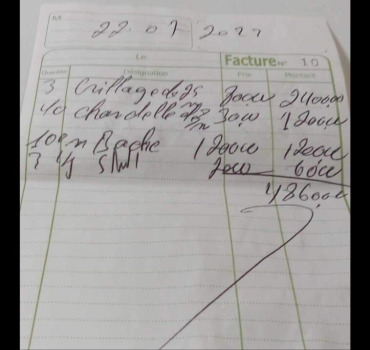 M
22 01 2022
Le
Facture N° 10
Quantité Désignation Prix Montant
3 Grillage de 25 80000 240000
40 chandelle 3000 120000
100 m Bache 1200 120000
3 2000 6000
486000